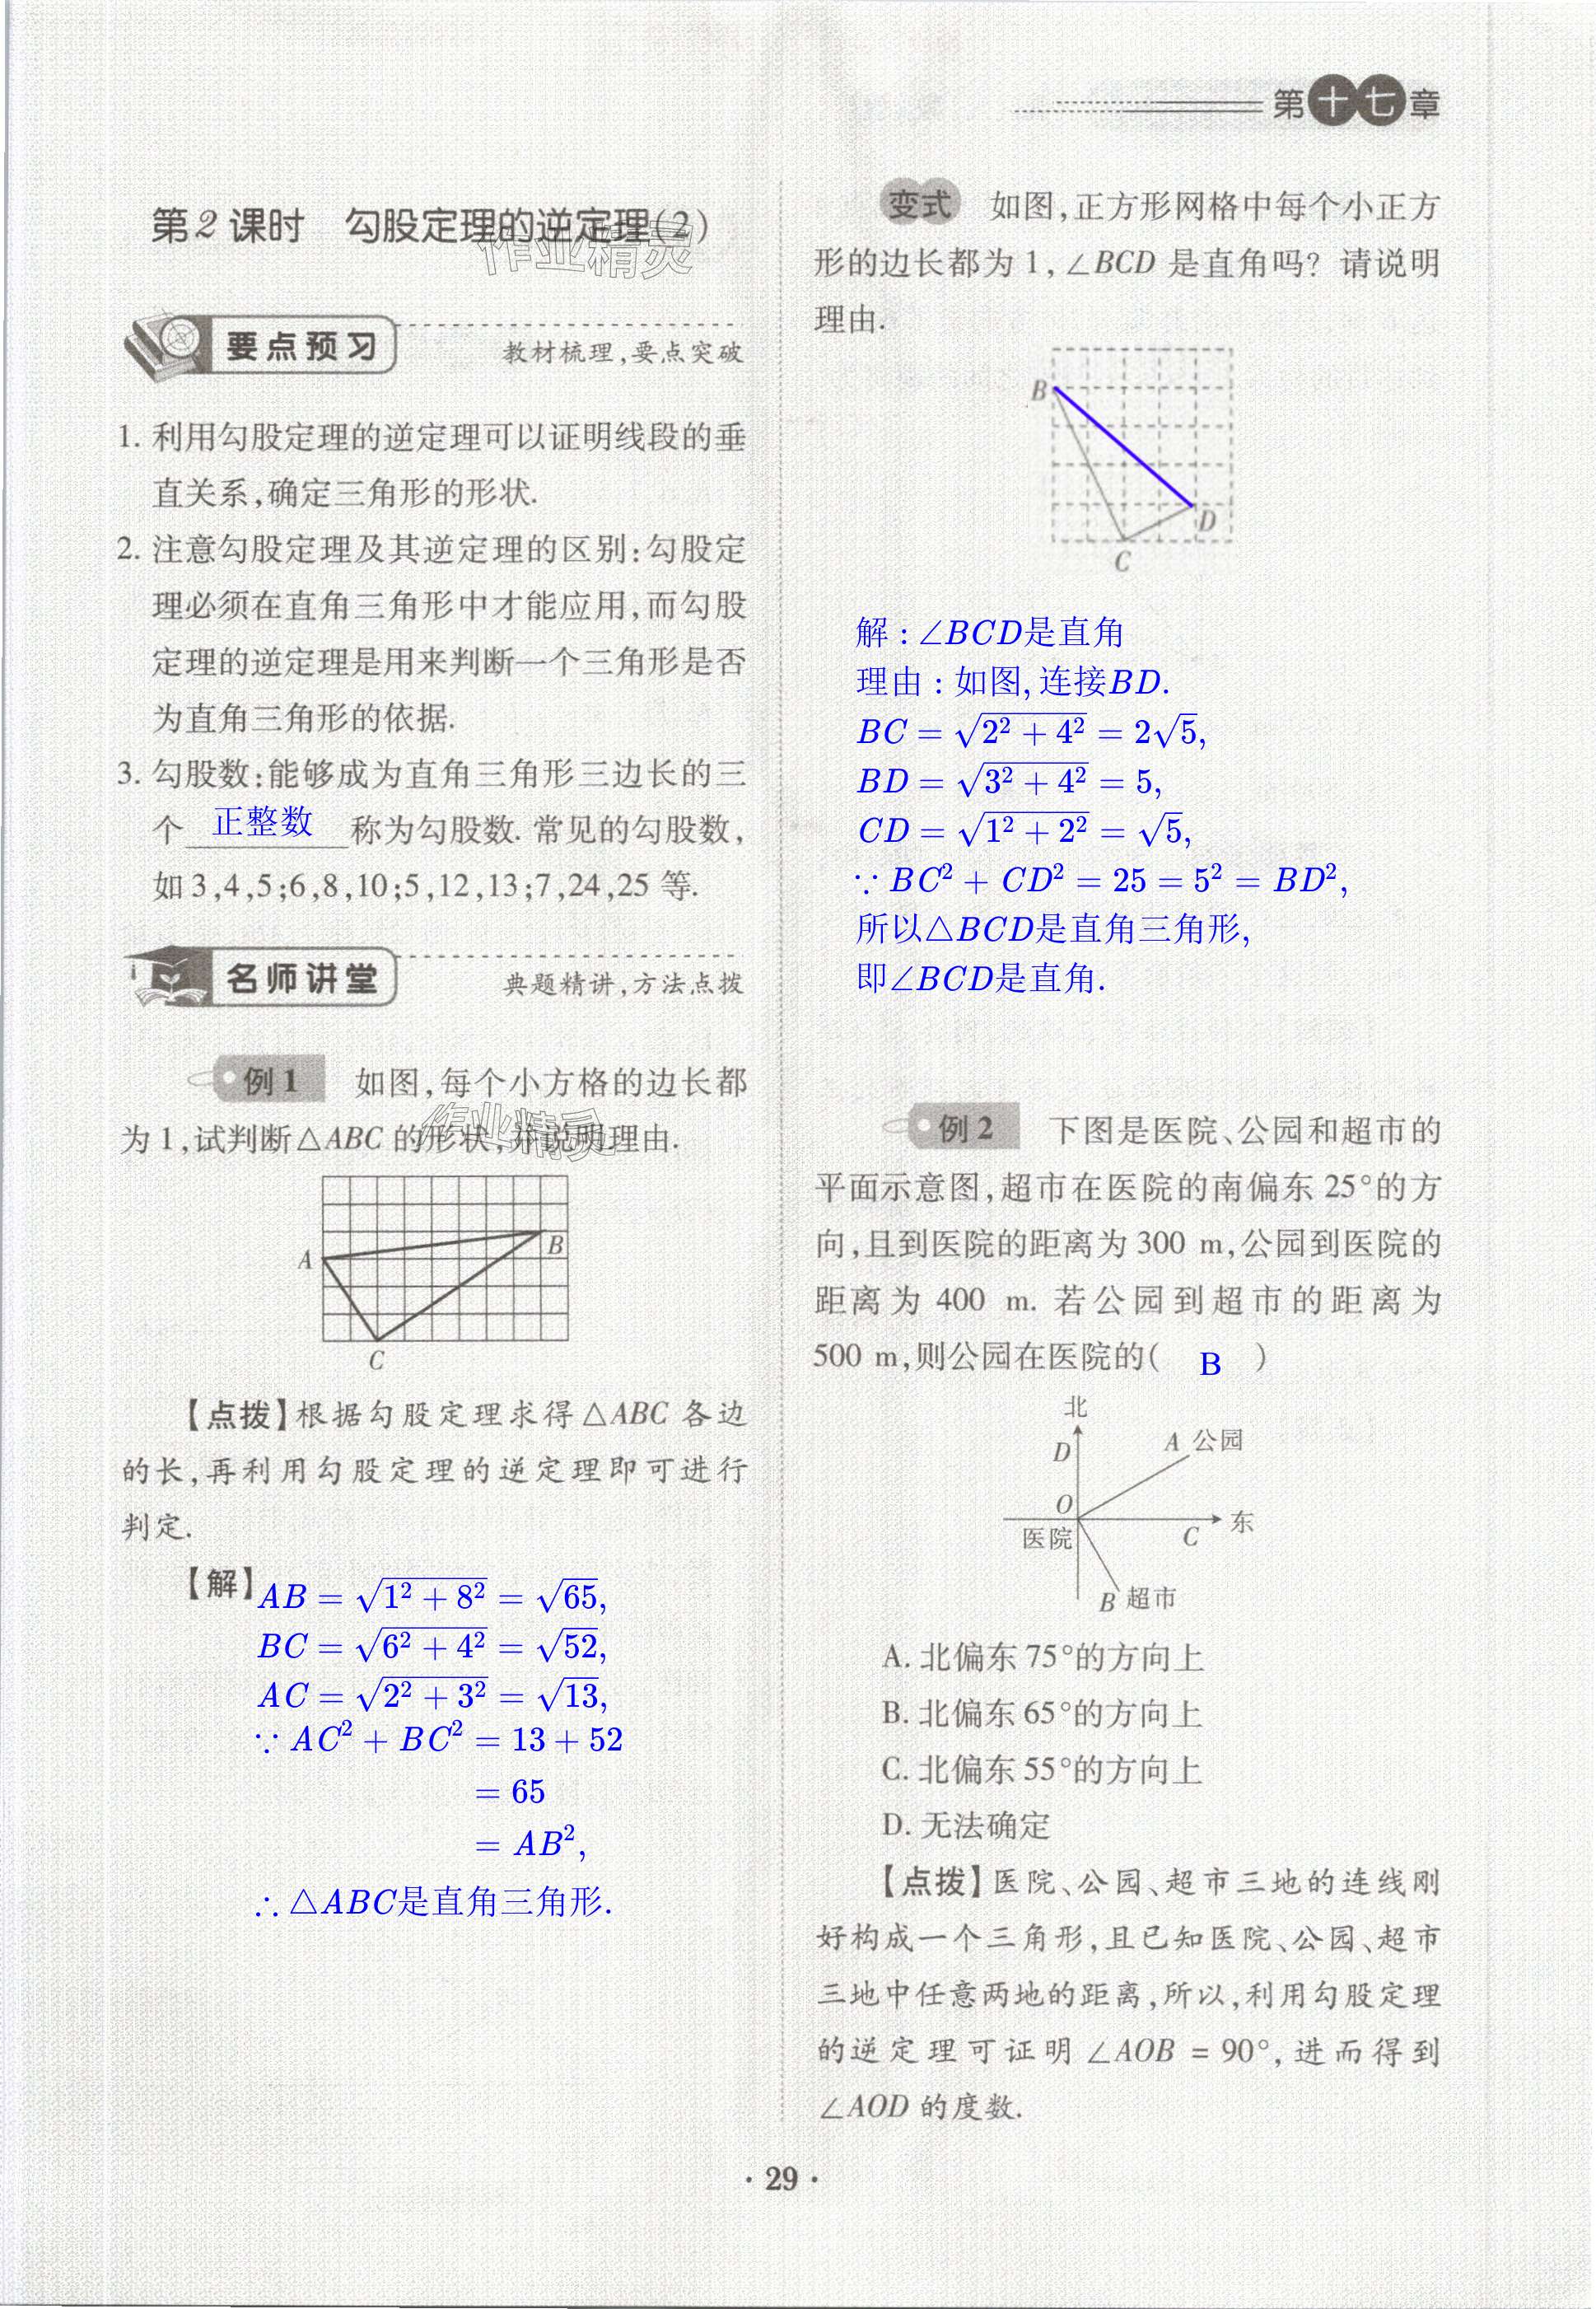 第十七章
第2课时　勾股定理的逆定理(2)
作业精灵
要点预习
教材梳理,要点突破
1. 利用勾股定理的逆定理可以证明线段的垂
直关系,确定三角形的形状.
2. 注意勾股定理及其逆定理的区别:勾股定
理必须在直角三角形中才能应用,而勾股
定理的逆定理是用来判断一个三角形是否
为直角三角形的依据.
3. 勾股数:能够成为直角三角形三边长的三
个 正整数 称为勾股数. 常见的勾股数,
如3,4,5;6,8,10;5,12,13;7,24,25 等.
名师讲堂
典题精讲,方法点拨
例1　如图,每个小方格的边长都
为1,试判断△ABC 的形状,并说明理由.
作业精灵
A
B
C
【点拨】根据勾股定理求得△ABC 各边
的长,再利用勾股定理的逆定理即可进行
判定.
【解】AB = √(1² + 8²) = √65,
BC = √(6² + 4²) = √52,
AC = √(2² + 3²) = √13,
∵ AC² + BC² = 13 + 52
= 65
= AB²,
∴ △ABC是直角三角形.
变式　如图,正方形网格中每个小正方
形的边长都为1,∠BCD 是直角吗? 请说明
理由.
B
D
C
解 : ∠BCD是直角
理由 : 如图, 连接BD.
BC = √(2² + 4²) = 2√5,
BD = √(3² + 4²) = 5,
CD = √(1² + 2²) = √5,
∵ BC² + CD² = 25 = 5² = BD²,
所以△BCD是直角三角形,
即∠BCD是直角.
例2　下图是医院、公园和超市的
平面示意图,超市在医院的南偏东25°的方
向,且到医院的距离为300 m,公园到医院的
距离为 400 m. 若公园到超市的距离为
500 m,则公园在医院的( B )
北
D
A 公园
O
医院
C
东
B 超市
A. 北偏东75°的方向上
B. 北偏东65°的方向上
C. 北偏东55°的方向上
D. 无法确定
【点拨】医院、公园、超市三地的连线刚
好构成一个三角形,且已知医院、公园、超市
三地中任意两地的距离,所以,利用勾股定理
的逆定理可证明∠AOB = 90°,进而得到
∠AOD 的度数.
· 29 ·